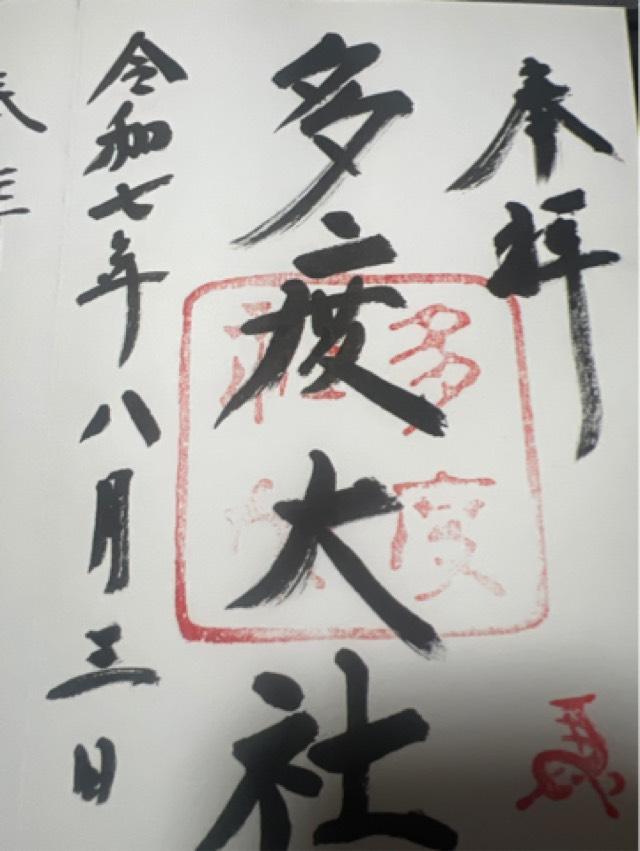 奉拝
多度大社
令和七年八月三日
多度